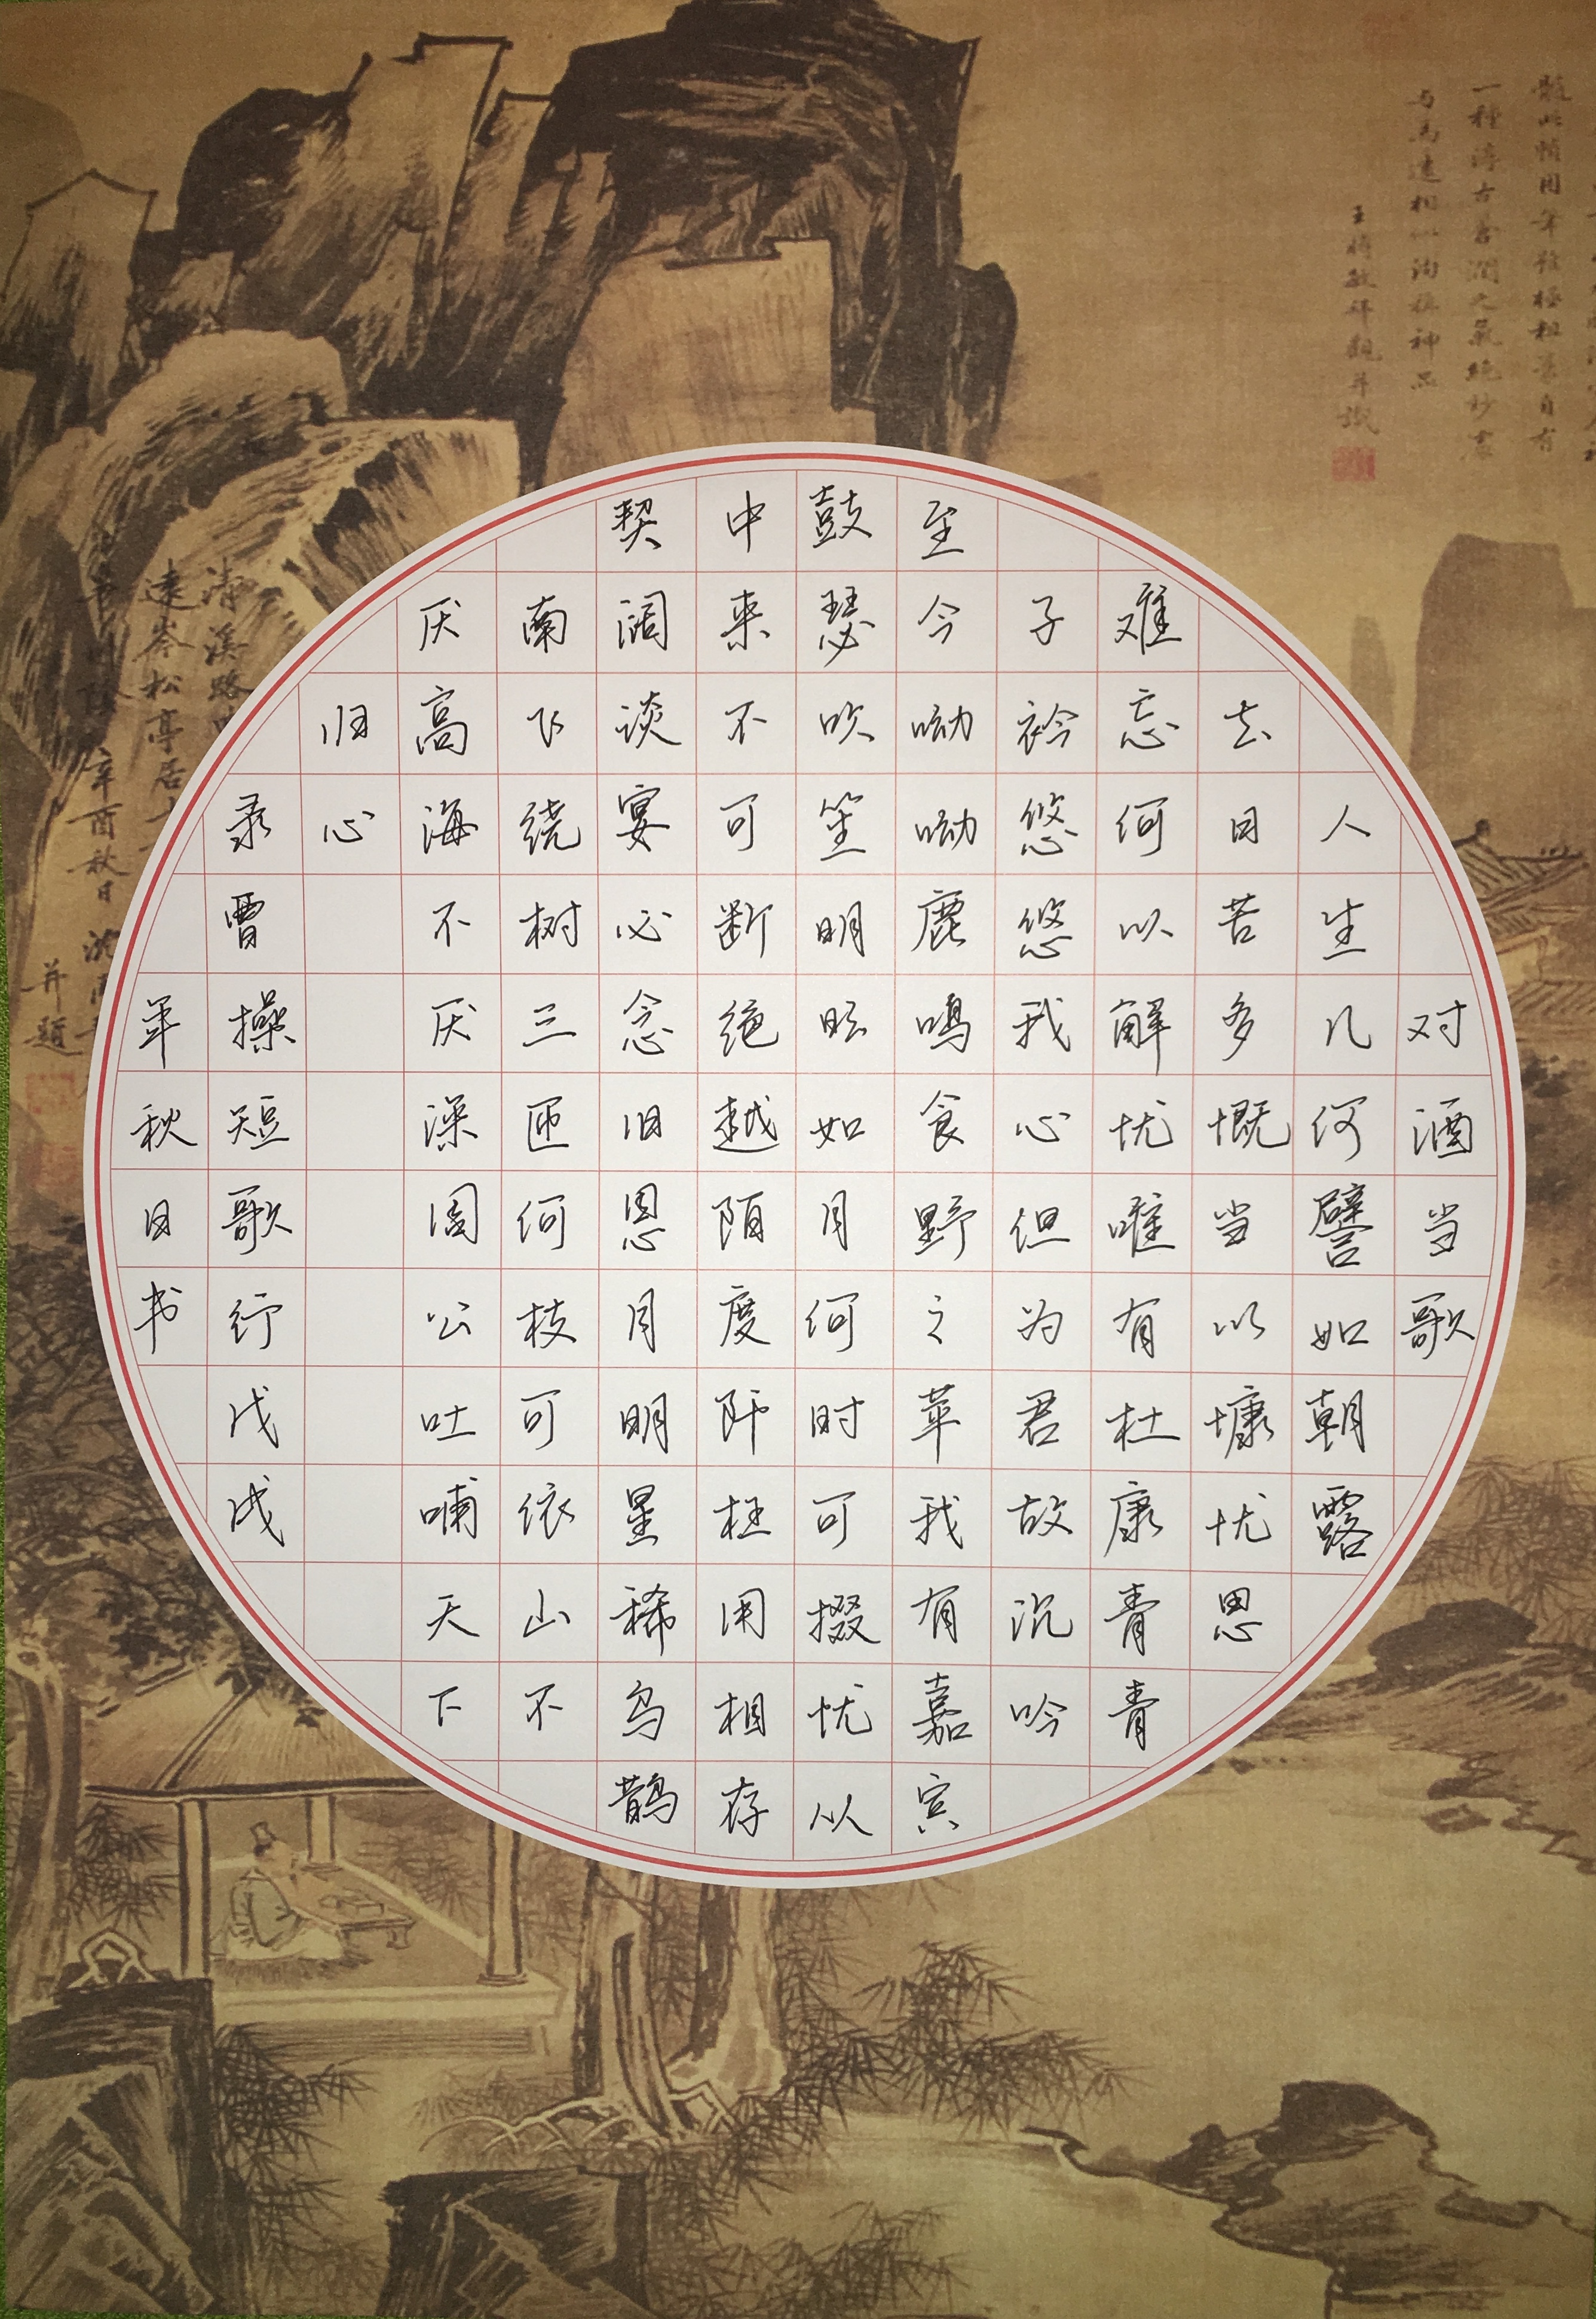 一種渾古蒼潤之氣絕妙
洵稱神品
王時敏拜觀并識
对酒当歌
人生几何譬如朝露
去日苦多慨当以慷忧思
难忘何以解忧唯有杜康青青
子衿悠悠我心但为君故沉吟
至今呦呦鹿鸣食野之苹我有嘉宾
鼓瑟吹笙明明如月何时可掇忧从
中来不可断绝越陌度阡枉用相存
契阔谈宴心念旧恩月明星稀乌鹊
南飞绕树三匝何枝可依山不
厌高海不厌深周公吐哺天下
归心
录曹操短歌行戊戌
年秋日书
清溪路
遠岑松亭居
辛酉秋日
并題